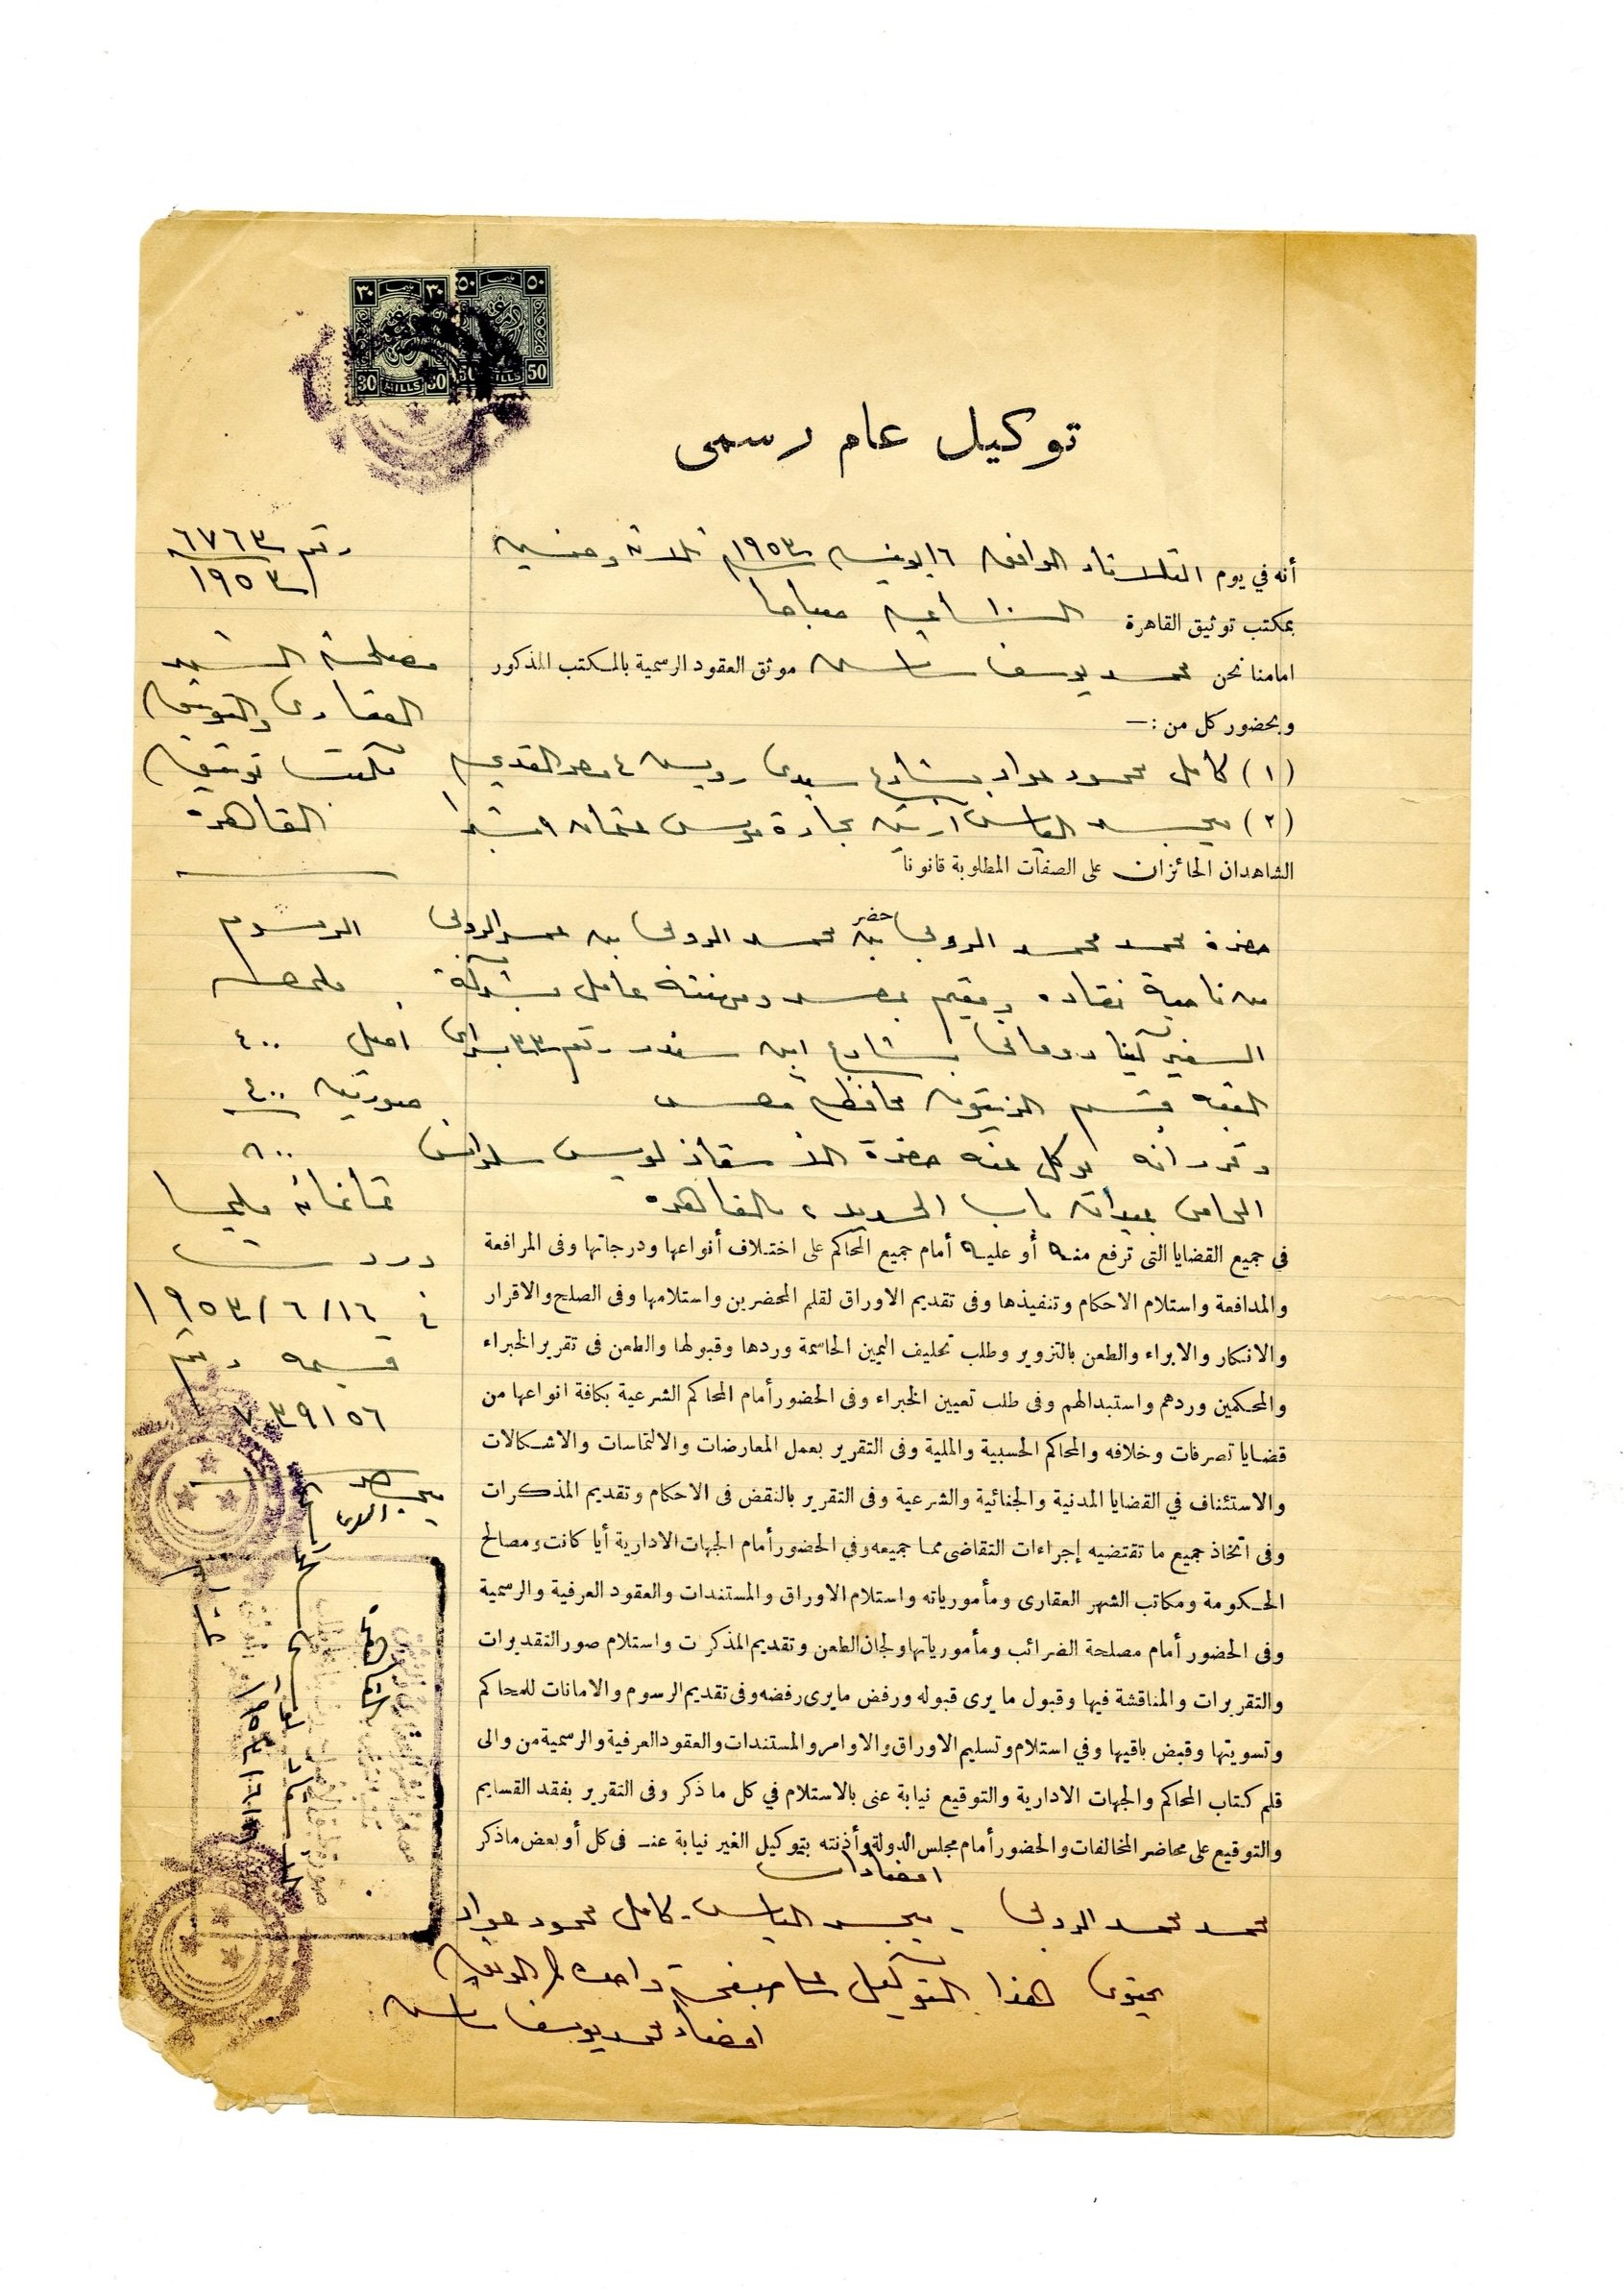 ٣٠ مليما ٣٠
٥٠ مليما ٥٠
30 MILLS 30
50 MILLS 50
توكيل عام رسمى
رقم ٦٧٦٣
١٩٥٣
مصلحة الشهر
العقارى والتوثيق
مكتب توثيق
القاهرة
الرسوم
مليم
أصل ٤٠٠
صورتين ٤٠٠
٨٠٠
ثمانمائة مليما
وردت
فى ١٦/٦/١٩٥٣
قسيمة رقم
٧٣٩١٥٦
أنه في يوم الثلاثاء الموافق ١٦ يونيه ١٩٥٣ ثلاثة وخمسين
بمكتب توثيق القاهرة الساعة ١٠ صباحا
امامنا نحن محمد يوسف موثق العقود الرسمية بالمكتب المذكور
وبحضور كل من :—
(١) كامل محمود جواد بشارع سيدى ٤ مصر القديمة
(٢) الياس بحارة عثمان ٩ شبرا
الشاهدان الحائزان على الصفات المطلوبة قانونا
حضر
حضرة محمد محمد الروبى بن محمد الروبى بن الروبى
من ناحية نقاده ومقيم بمصر ومهنته عامل بشركة
السفير بشارع ابن سندر رقم ٣٣ بسراى
القبه قسم الزيتون محافظة مصر
وقرر انه يوكل عنه حضرة الأستاذ لويس
المحامى بميدان باب الحديد بالقاهرة
في جميع القضايا التى ترفع منه أو عليه أمام جميع المحاكم على اختلاف أنواعها ودرجاتها وفى المرافعة
والمدافعة واستلام الاحكام وتنفيذها وفى تقديم الاوراق لقلم المحضرين واستلامها وفى الصلح والاقرار
والانكار والابراء والطعن بالتزوير وطلب تحليف اليمين الحاسمة وردها وقبولها والطعن فى تقرير الخبراء
والمحكمين وردهم واستبدالهم وفى طلب تعيين الخبراء وفى الحضور أمام المحاكم الشرعية بكافة انواعها من
قضايا تصرفات وخلافه والمحاكم الحسبية والملية وفى التقرير بعمل المعارضات والالتماسات والاشكالات
والاستئناف في القضايا المدنية والجنائية والشرعية وفى التقرير بالنقض فى الاحكام وتقديم المذكرات
وفى اتخاذ جميع ما تقتضيه إجراءات التقاضى مما جميعه وفي الحضور أمام الجهات الادارية أيا كانت ومصالح
الحكومة ومكاتب الشهر العقارى ومأمورياته واستلام الاوراق والمستندات والعقود العرفية والرسمية
وفى الحضور أمام مصلحة الضرائب ومأمورياتها ولجان الطعن وتقديم المذكرت واستلام صور التقديرات
والتقريرات والمناقشة فيها وقبول ما يرى قبوله ورفض ما يرى رفضه وفى تقديم الرسوم والامانات للمحاكم
وتسويتها وقبض باقيها وفي استلام وتسليم الاوراق والاوامر والمستندات والعقود العرفية والرسمية من والى
قلم كتاب المحاكم والجهات الادارية والتوقيع نيابة عنى بالاستلام في كل ما ذكر وفى التقرير بفقد القسايم
والتوقيع على محاضر المخالفات والحضور أمام مجلس الدولة وأذنته بتوكيل الغير نيابة عنـ فى كل أو بعض ماذكر
امضاءات
محمد محمد الروبى - الياس - كامل محمود جواد
يحتوى هذا التوكيل على صفحة واحدة
امضاء محمد يوسف